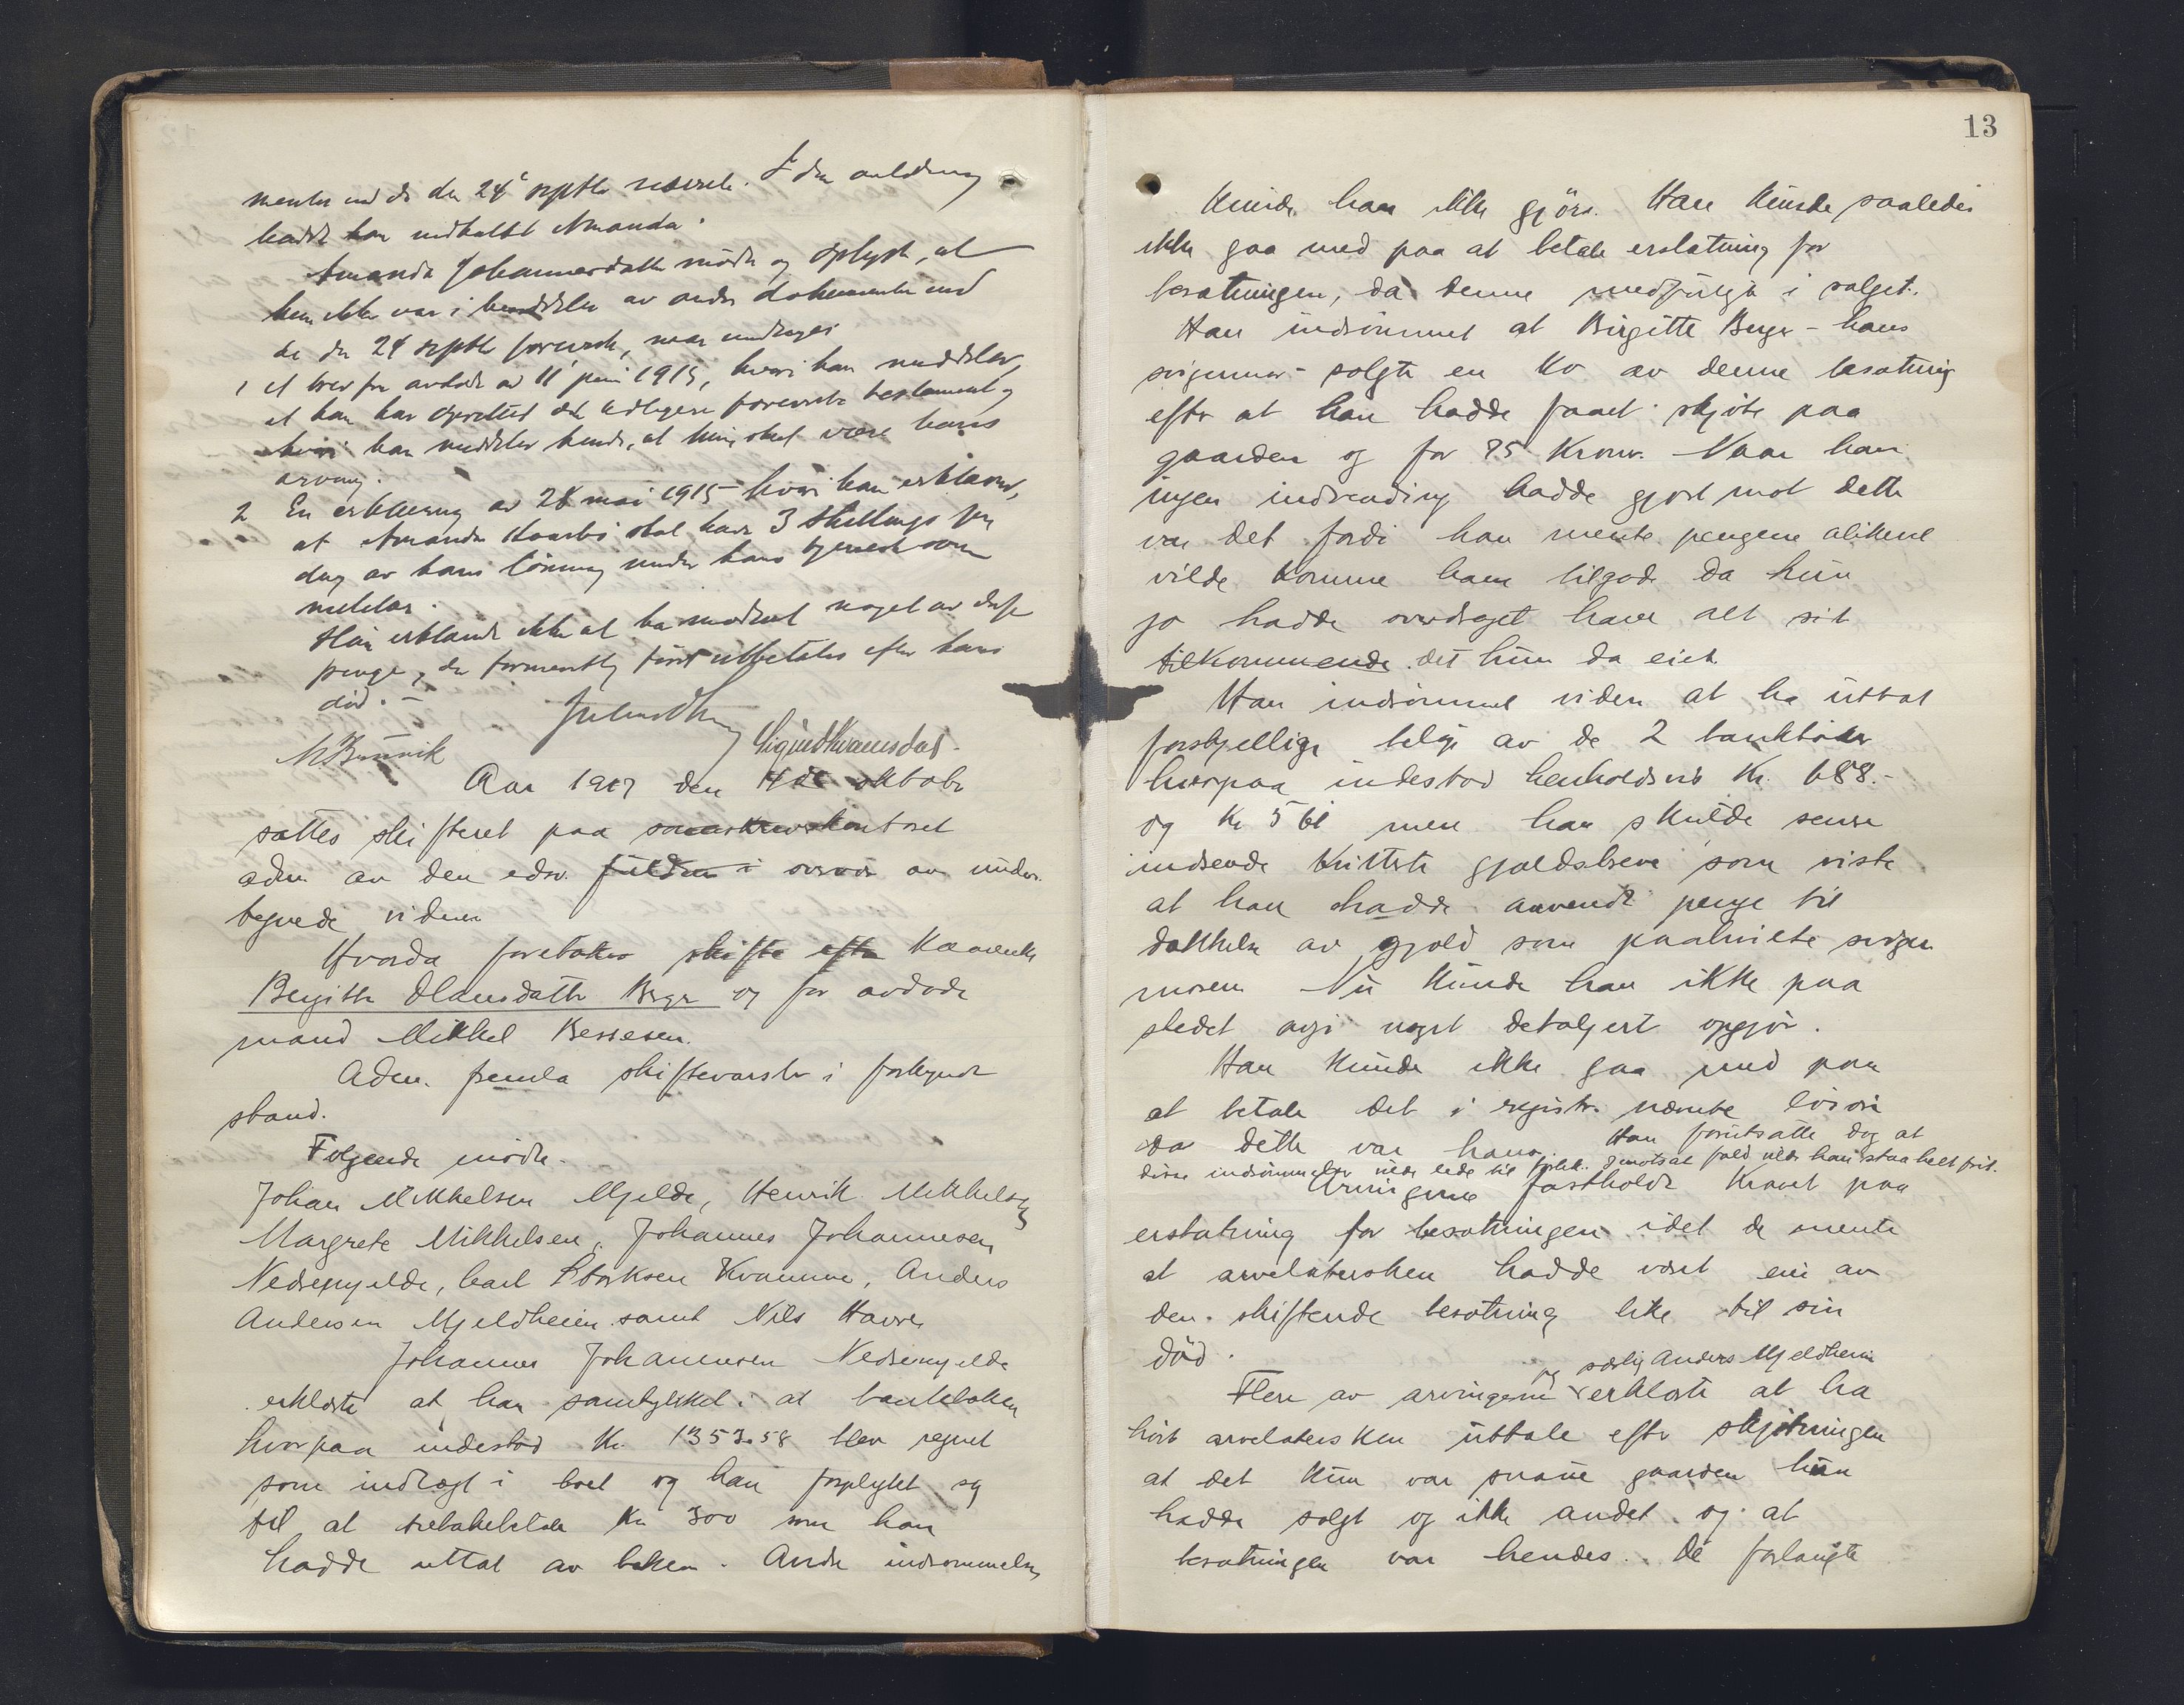 menter end de den 24 septbr I den anledning
hadde han indkaldt Amanda.
Amanda Johannesdatter mødte og oplyste, at
hun ikke var i besiddelse av andre dokumenter end
de den 24 septbr foreviste, naar undtages
1 et brev fra avdøde av 11 juni 1915, hvori han meddeler,
at han har oprettet det tidligere foreviste testament og
hvori han meddeler hende, at hun skal være hans
arving.
2 En erklæring av 28 mai 1915 hvori han erklærer,
at Amanda skal have 3 Skillings pr
dag av hans lønning under hans tjeneste som
militær.
Hun erklærte ikke at ha modtat noget av disse
penge, da formentlig først utbetales efter hans
død. –
Sigurd Kvamsdal.
Aar 1917 den 4de oktober
sattes skifteret paa sorenskriverkontoret
adm. av den edsv. fuldm i overvær av under-
tegnede vidner
Hvorda foretokes skifte efter Kaarenke
Birgitte Hansdatter Berge og før avdøde
mand Mikkel Bessesen.
Adm. fremla skiftevarsler i forkyndt
stand.
Følgende mødte.
Johan Mikkelsen Mjelde, Henrik Mikkelsen
Margrete Mikkelsen, Johannes Johannesen
Nedremjelde, Carl Storksen Kvamme, Anders
Andersen Mjeldheim samt Nils Havre
Johannes Johannesen Nedremjelde
erklærte at han samtykket i at bankboken
hvorpaa indestod Kr. 1353.58 blev regnet
som indlagt i boet og han forpligtet sig
til at tilbakebetale Kr 300 som han
hadde uttat av boken. Andre indrømmelser
13
kunde han ikke gjøre. Han kunde saaledes
ikke gaa med paa at betale erstatning for
besætningen, da denne medfulgte i salget.
Han indrømmet at Birgitte Berge – hans
svigermor – solgte en ko av denne besætning
efter at han hadde faaet skjøte paa
gaarden og for 85 Kroner. Naar han
ingen indvending hadde gjort mot dette
var det fordi han mente pengene allikevel
vilde komme ham tilgode da hun
jo hadde overdraget ham alt sit
tilkommende det hun da eiet
Han indrømmet videre at ha uttat
forskjellige beløp av de 2 bankbøker
hvorpaa indestod henholdsvis Kr. 688.–
og Kr 561 men han skulde senere
indsende kvitterte gjældsbreve som viste
at han hadde anvendt penge til
dækkelse av gjæld som paahvilte sviger
moren Nu kunde han ikke paa
stedet avgi noget detaljert opgjør.
Han kunde ikke gaa med paa
at betale det i registr. nævnte løsøre
da dette var hans. Han forutsatte dog at
disse indrømmelser vilde lede til forlik. I motsat fald vilde han staa helt frit.
Arvingerne fastholdt kravet paa
erstatning for besætningen idet de mente
at arvelatersken hadde været eier av
den skiftende besætning like til sin
død.
og særlig Anders Mjeldheim
Flere av arvingerne erklærte at ha
hørt arvelatersken uttale efter skjøtningen
at det kun var snaue gaarden hun
hadde solgt og ikke andet og at
besætningen var hendes. De forlangte